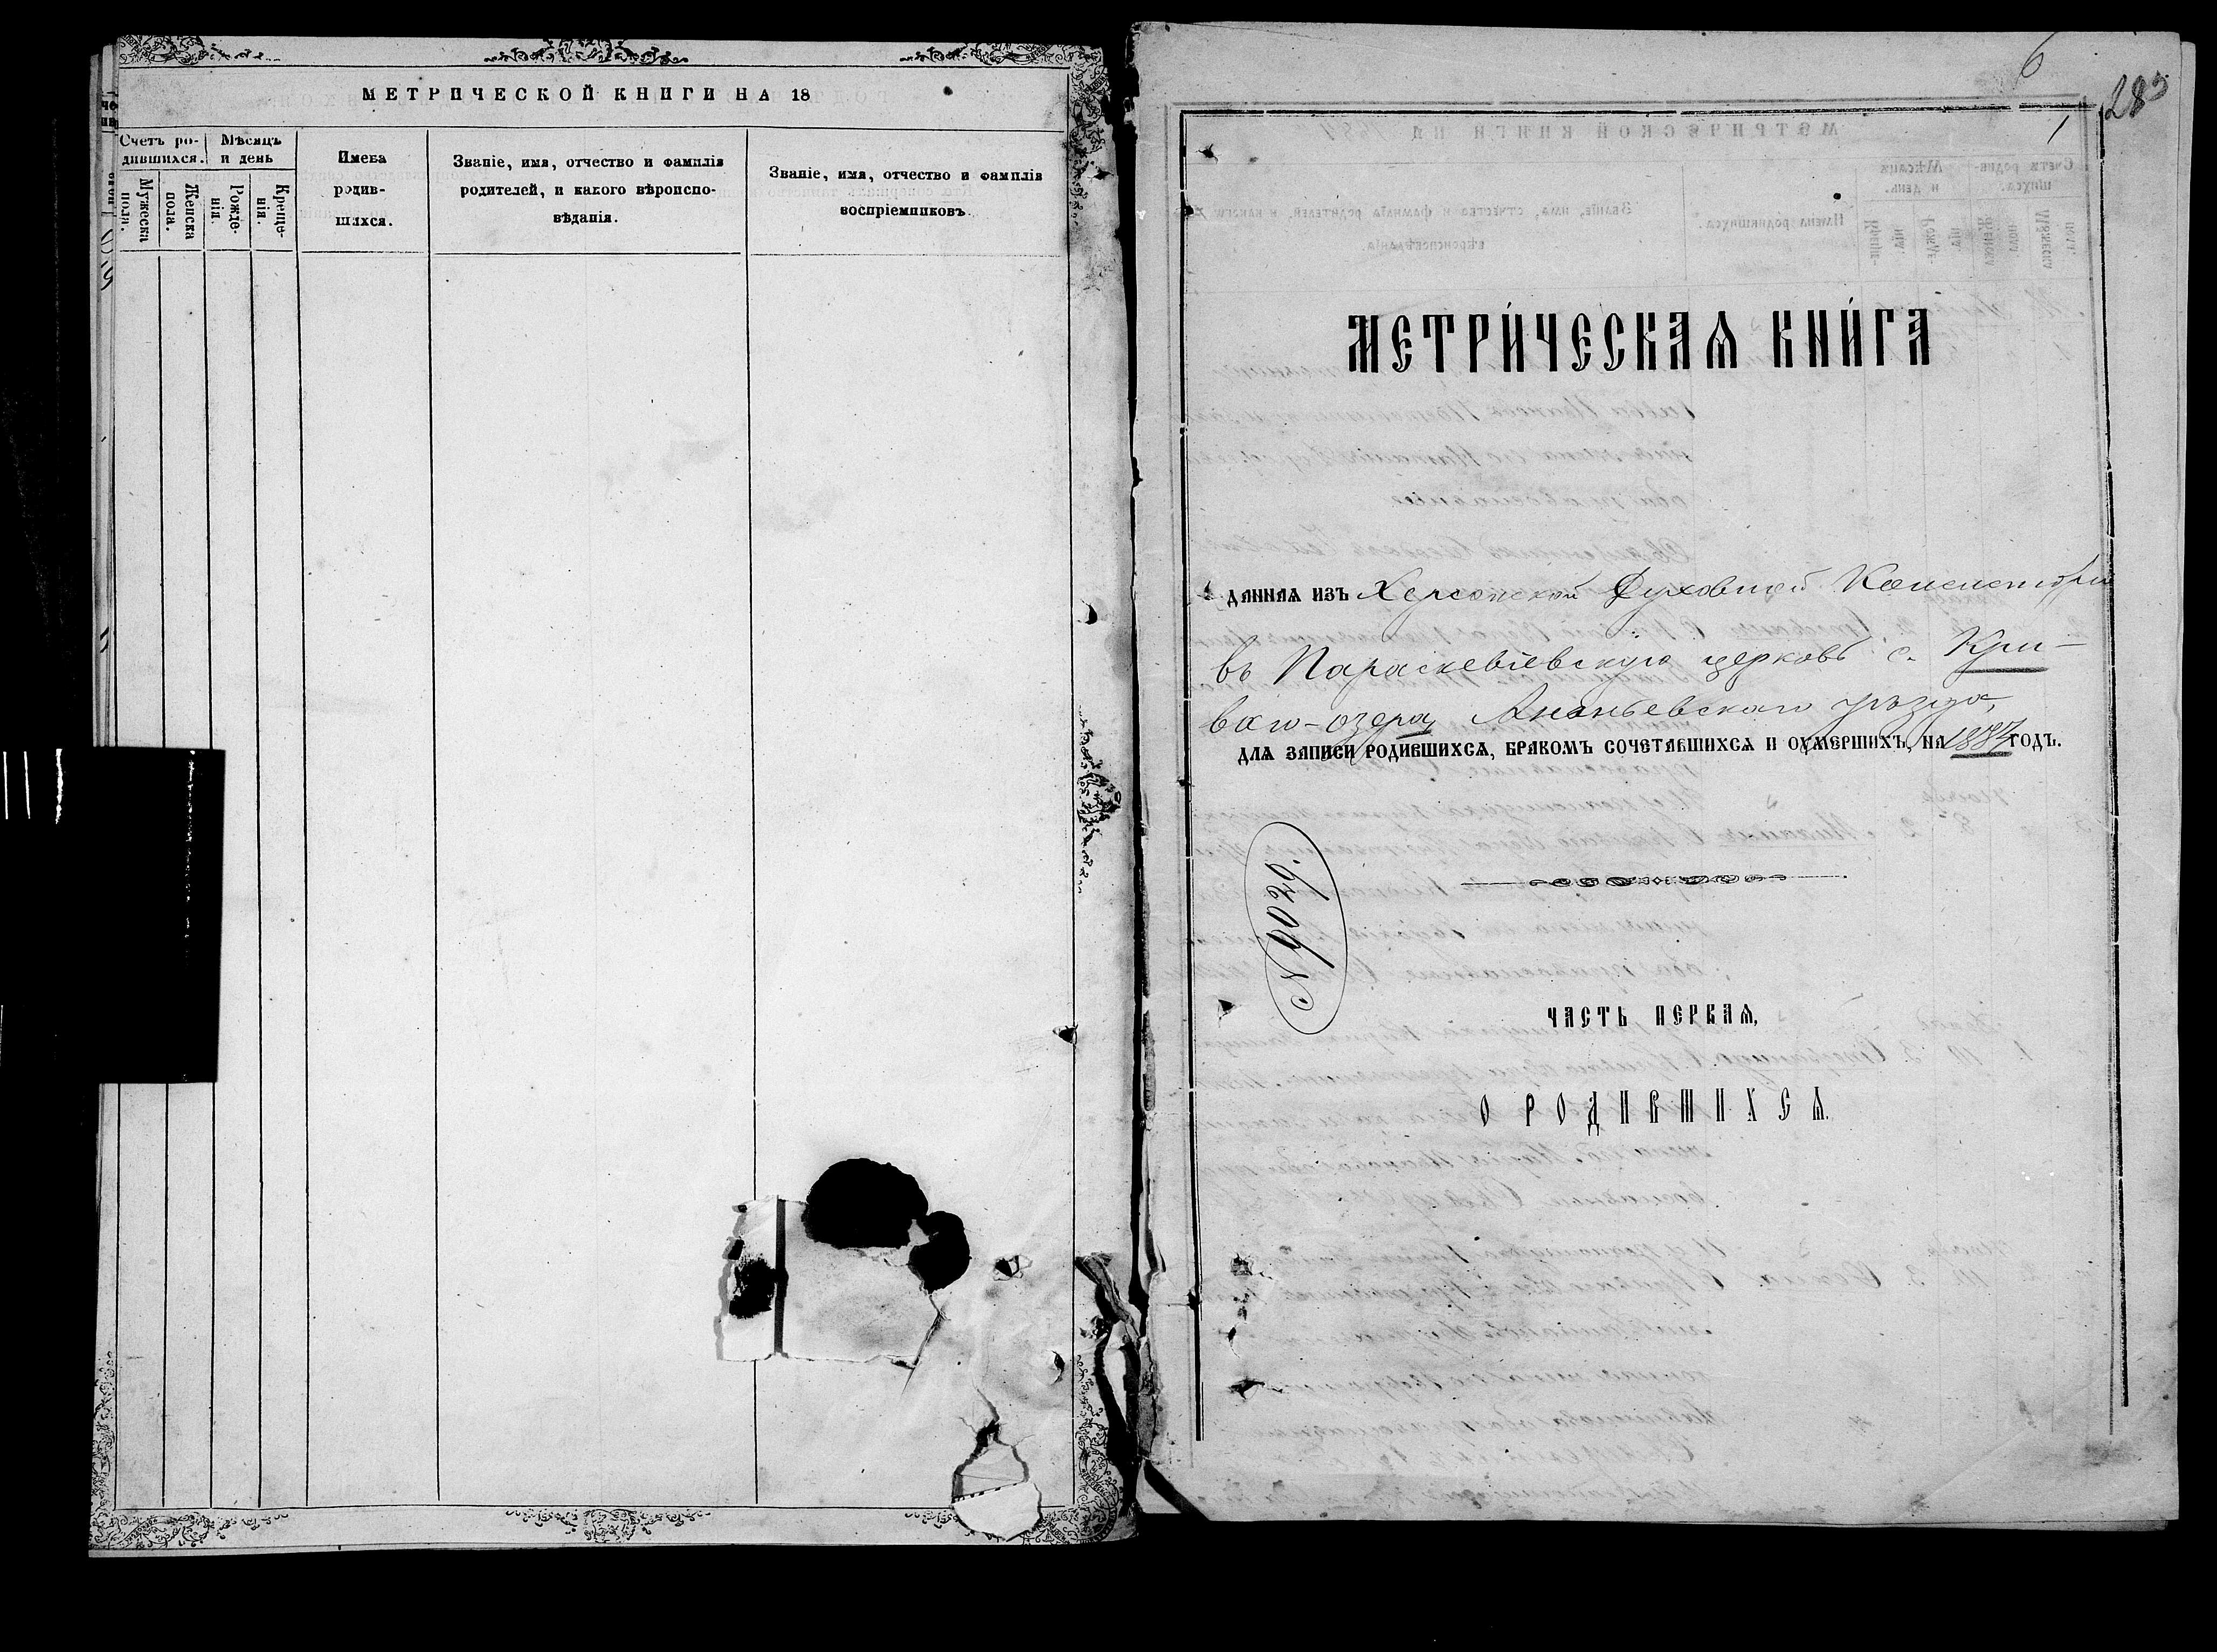 МЕТРИЧЕСКОЙ КНИГИ НА 18
Счетъ ро-
дившихся.
Мѣсяцъ
и день
Мужеска
пола.
Женска
пола.
Рожде-
нія.
Креще-
нія.
Имена
родив-
шихся.
Званіе, имя, отчество и фамилія
родителей, и какого вѣроиспо-
вѣданія.
Званіе, имя, отчество и фамилія
воспріемниковъ.
6
1
МЕТРИ́ЧЕСКАѦ КНИ́ГА
даннаѧ изъ Херсонской Духовной Консисторіи
въ Параскевіевскую церковь с. Кри-
ваго-озера, Ананьевскаго уѣзда,
длѧ записи родившихсѧ, бракомъ сочетавшихсѧ и ѹмершихъ, на 1884 годъ.
№ 9029.
ЧАСТЬ ПЕРВАѦ,
О РОДИВШИХСѦ.